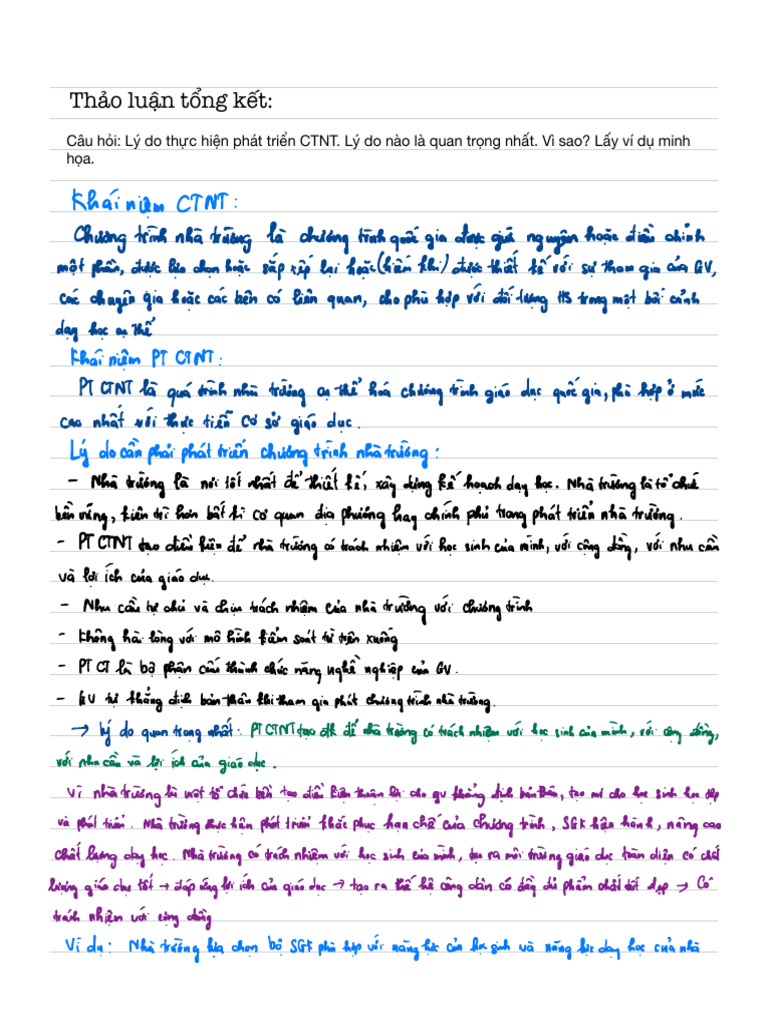 Thảo luận tổng kết:
Câu hỏi: Lý do thực hiện phát triển CTNT. Lý do nào là quan trọng nhất. Vì sao? Lấy ví dụ minh
họa.
Khái niệm CTNT:
Chương trình nhà trường là chương trình quốc gia được giữ nguyên hoặc điều chỉnh
một phần, được lựa chọn hoặc sắp xếp lại hoặc (hiếm khi) được thiết kế với sự tham gia của GV,
các chuyên gia hoặc các bên có liên quan, cho phù hợp với đối tượng HS trong một bối cảnh
dạy học cụ thể
Khái niệm PT CTNT:
PT CTNT là quá trình nhà trường cụ thể hoá chương trình giáo dục quốc gia, phù hợp ở mức
cao nhất với thực tiễn cơ sở giáo dục.
Lý do cần phải phát triển chương trình nhà trường:
- Nhà trường là nơi tốt nhất để thiết kế, xây dựng kế hoạch dạy học. Nhà trường là tổ chức
bền vững, kiên trì hơn bất kì cơ quan địa phương hay chính phủ trong phát triển nhà trường.
- PT CTNT tạo điều kiện để nhà trường có trách nhiệm với học sinh của mình, với cộng đồng, với nhu cầu
và lợi ích của giáo dục.
- Nhu cầu tự chủ và chịu trách nhiệm của nhà trường với chương trình
- Không hài lòng với mô hình kiểm soát từ trên xuống
- PT CT là bộ phận cấu thành chức năng nghề nghiệp của GV.
- GV tự khẳng định bản thân khi tham gia phát chương trình nhà trường.
→ Lý do quan trọng nhất: PT CTNT tạo đk để nhà trường có trách nhiệm với học sinh của mình, với cộng đồng,
với nhu cầu và lợi ích của giáo dục.
Vì nhà trường là một tổ chức bền tạo điều kiện thuận lợi cho gv khẳng định bản thân, tạo cho học sinh học tập
và phát triển. Nhà trường thực hiện phát triển khắc phục hạn chế của chương trình, SGK hiện hành, nâng cao
chất lượng dạy học. Nhà trường có trách nhiệm với học sinh của mình, tạo ra môi trường giáo dục toàn diện có chất
lượng giáo dục tốt → đáp ứng lợi ích của giáo dục → tạo ra thế hệ công dân có đầy đủ phẩm chất tốt đẹp → Có
trách nhiệm với cộng đồng
Ví dụ: Nhà trường lựa chọn bộ SGK phù hợp với năng lực của học sinh và năng lực dạy học của nhà